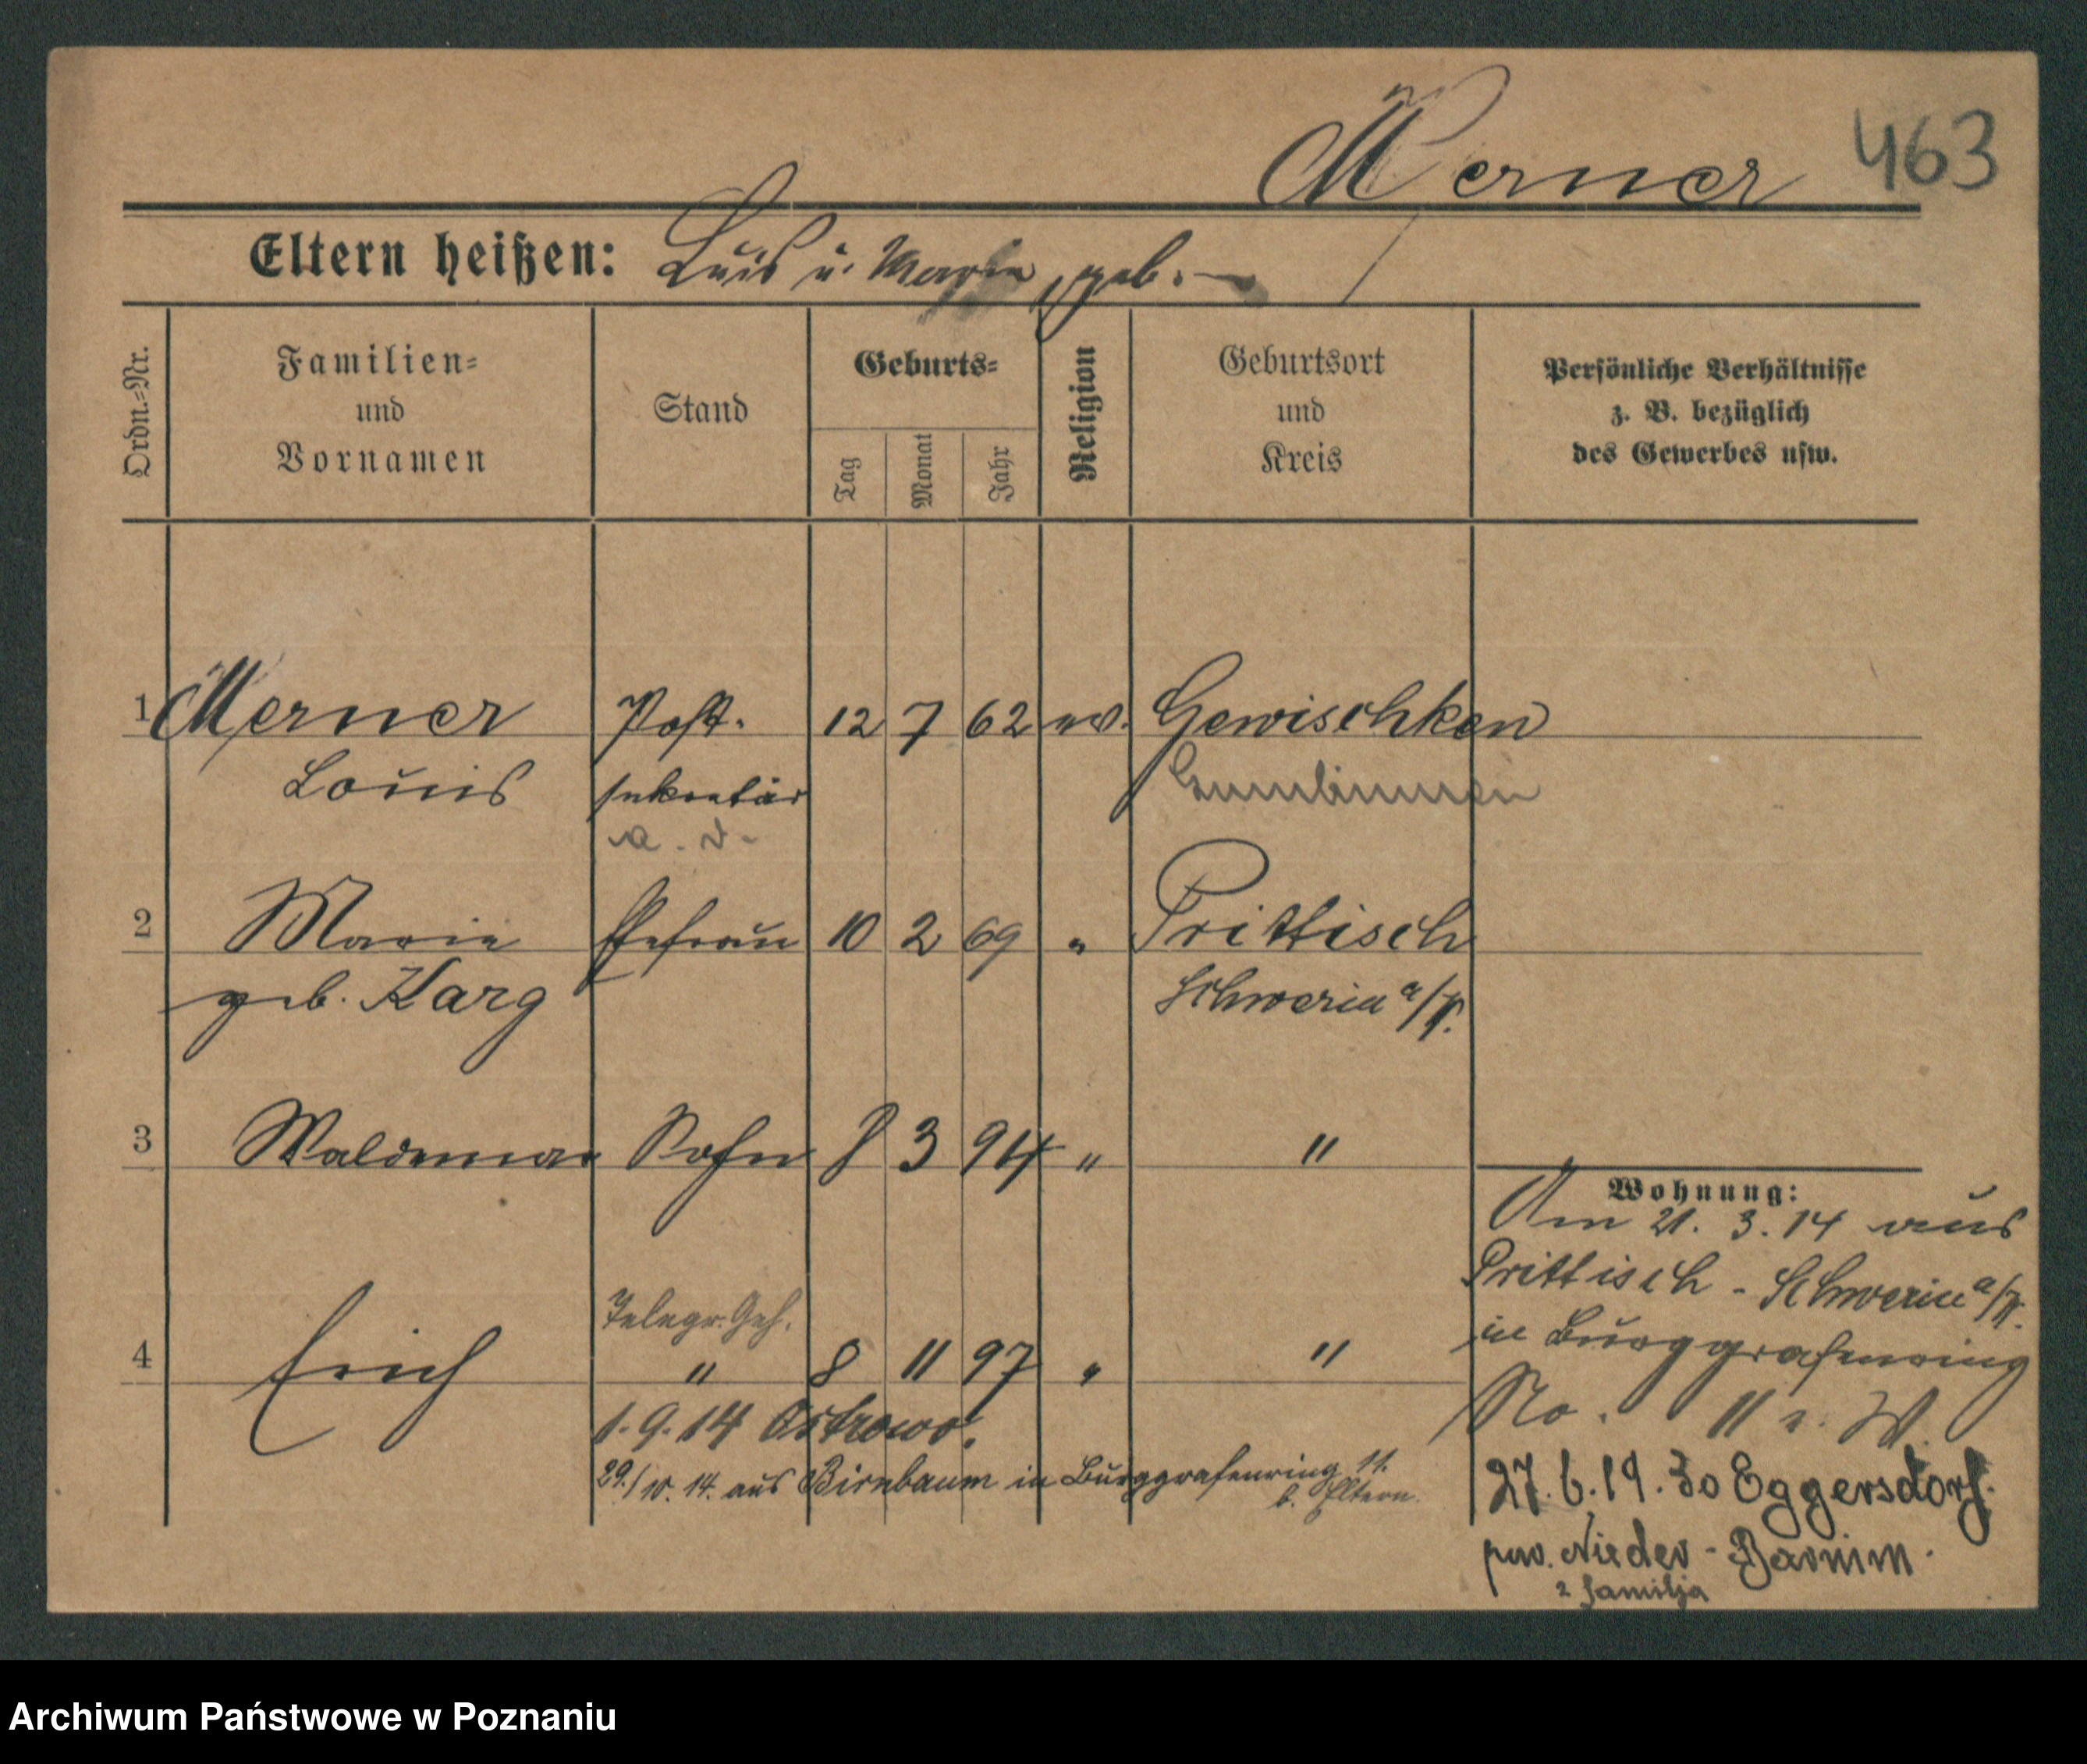 Werner 463
Eltern heißen: Luis u. Marie, geb. —
Ordn.-Nr.
Familien- und Vornamen
Stand
Geburts-
Tag
Monat
Jahr
Religion
Geburtsort und Kreis
Persönliche Verhältnisse z. B. bezüglich des Gewerbes usw.
1 Werner Post- 12 7 62 ev. Gewischken
Louis sekretär Gumbinnen
a. D.
2 Marie Ehefrau 10 2 69 " Prittisch
geb. Karg Schwerin a/W.
3 Waldemar Sohn 8 3 94 " "
Telegr. Geh.
4 Erich " 8 11 97 " "
1.9.14 Ostrowo.
29./10. 14. aus Birnbaum in Burggrafenring 11.
b. Eltern.
Wohnung:
Am 21. 3. 14 aus
Prittisch - Schwerin a/W.
in Burggrafenring
No. 11 W.
27.6.19. do Eggersdorf.
pow. Nieder-Barnim.
z familja
Archiwum Państwowe w Poznaniu